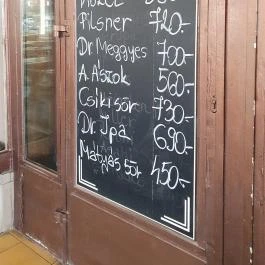 Pilsner 720.-
Dr Meggyes 700.-
A. Ászok 560.-
Csiki sör 730.-
Dr. Ipa 690.-
Mátyás sör 450.-